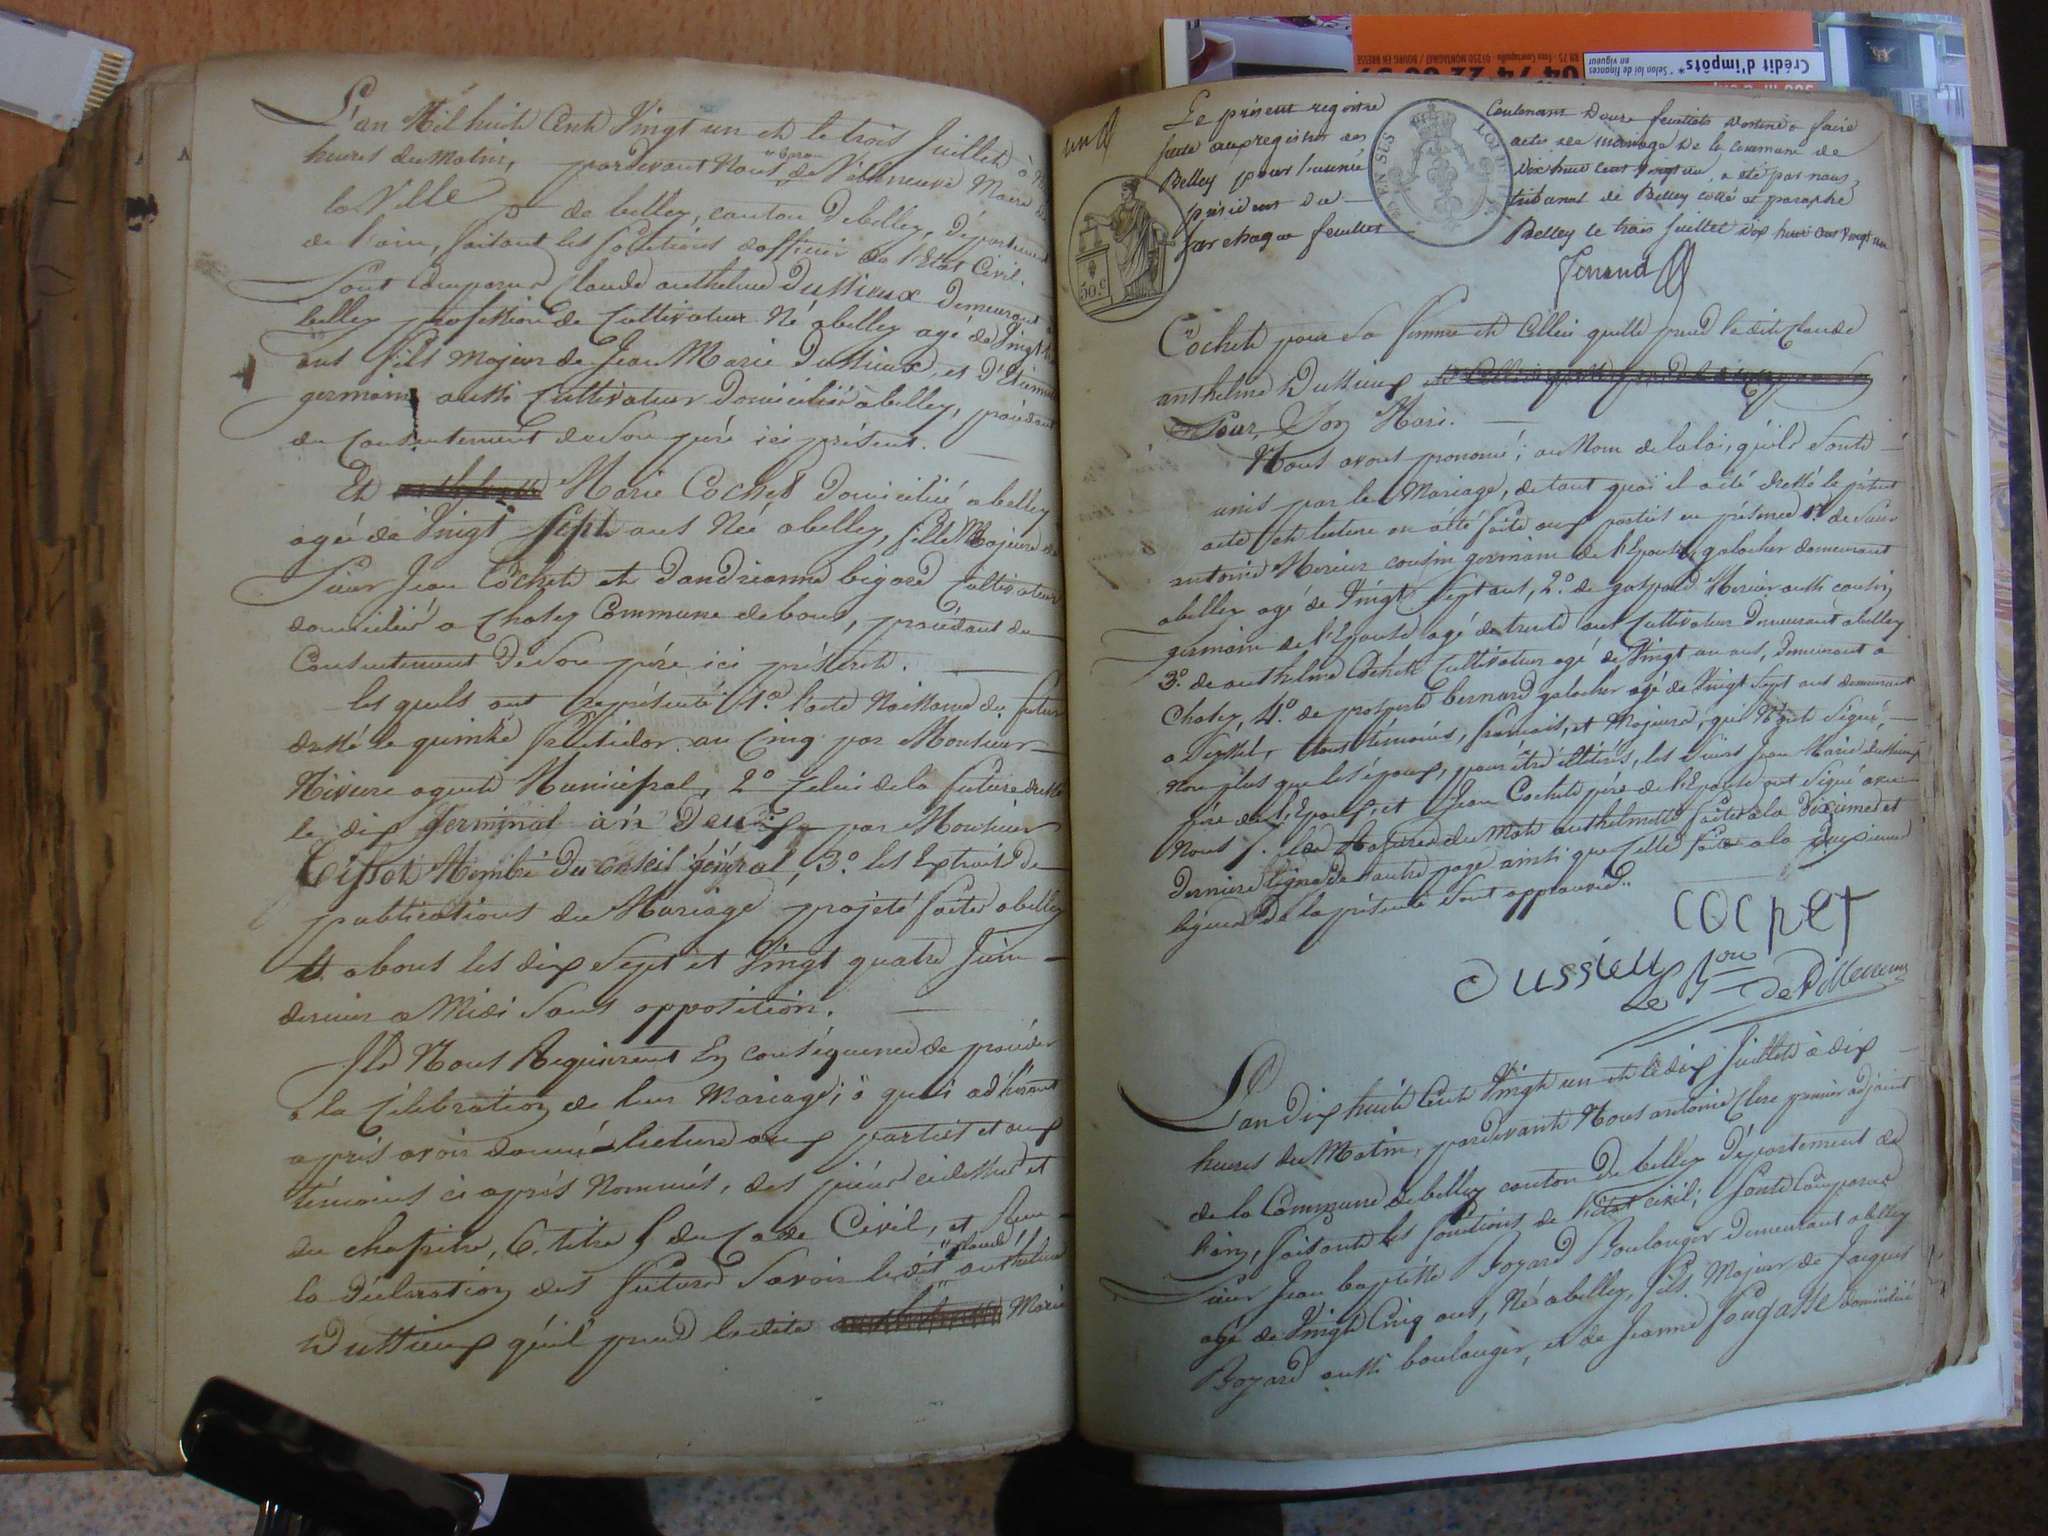 L'an Mil huit Cent Vingt un et le trois Juillet à
heures du Matin, pardevant Nous de Villeneuve Maire de
la Ville de belley, canton de belley, département
de l'ain, faisant les fonctions d'officier de l'Etat Civil.
Sont comparus Claude anthelme Dussieux Demeurant a
belley profession de Cultivateur Né a belley agé de Vingt
ans fils Majeur de Jean Marie Dussieux, et d'Etiennette
germain, aussi Cultivateur Domicilié a belley, procédant
du consentement de Son père ici présent.
Et Marie Cochet domiciliée a belley
agée de Vingt Sept ans Née a belley, fille Majeure de
Sieur Jean Cochet et d'andrianne bigard Cultivateur
domicilié a Chatey Commune de bons, procédant du
Consentement De Son père ici présent.
les quels ont représenté 1.º l'acte Naissance du futur
dressé le quinze fructidor an Cinq par Monsieur
agent Municipal, 2º Celui de la future dressé
le dix germinal an Deux par Monsieur
Tissot Membre Du conseil général, 3º les Extraits de
publications du Mariage projeté faites a belley
& a bons les dix Sept et Vingt quatre Juin
dernier a Midi Sans opposition.
Ils Nous Requierent En conséquence de procéder
a la Célébration de leur Mariage; à quoi adhérant
après avoir donné lecture aux parties et aux
témoins ci après Nommés, des pièces cidessus et
du chapitre 6. titre 5 du Code Civil, et Reçu
la Déclaration des futurs Savoir ledit "Claude" anthelme
Dussieux qu'il prend ladite Marie
Le présent registre Contenant Douze feuillets destiné à faire
suite au registre des actes de mariage De la Commune de
Belley pour l'année Dix huit Cent Vingt un, a été par nous
président du tribunal de Belley cotté et paraphé
sur chaque feuillet Belley le trois Juillet dix huit Cent Vingt un
50.c
Cochet pour Sa femme et Celleci qu'elle prend ledit Claude
anthelme Dussieux
Pour Son Mari.
Nous avons prononcé; au Nom de la loi, qu'ils Sont
unis par le Mariage, de tout quoi il a été dressé le présent
acte et lecture en a été faite aux parties en présence 1.º de Sieur
antoine Mercier cousin germain de l'Epouse galocher demeurant
a belley agé de Vingt Sept ans, 2.º de gaspard Mercier aussi cousin
germain de l'Epouse agé de trente ans Cultivateur Demeurant a belley
3.º de anthelme Cochet Cultivateur agé de Vingt un ans, Demeurant a
Chatey, 4.º de prosper bernard galocher agé de Vingt Sept ans demeurant
a Seyssel, tous témoins, français, et Majeurs, qui N'ont Signé,
Non plus que les époux, pour être illitérés, les Sieurs Jean Marie Dussieux
père de l'Epoux, et Jean Cochet père de l'Epouse ont Signé avec
Nous /. les Ratures du Mot anthelmette faites a la Dixieme et
Derniere ligne de l'autre page ainsi que Celle faite a la Deuxieme
ligne De la présente Sont approuvées.
COCHET
Dussieux
Le Bon De Villeneuve
L'an Dix huit Cent Vingt un et le dix Juillet à dix
heures du Matin, pardevant Nous antoine Clerc premier adjoint
de la Commune de belley canton De belley Département de
l'ain, faisant les fonctions de l'état civil; Sont Comparus
Sieur Jean baptiste Boyard Boulanger Demeurant a belley
agé de Vingt Cinq ans, Né a belley, fils Majeur de Jacques
Boyard aussi boulanger, et de Jeanne Fougasse domiciliés